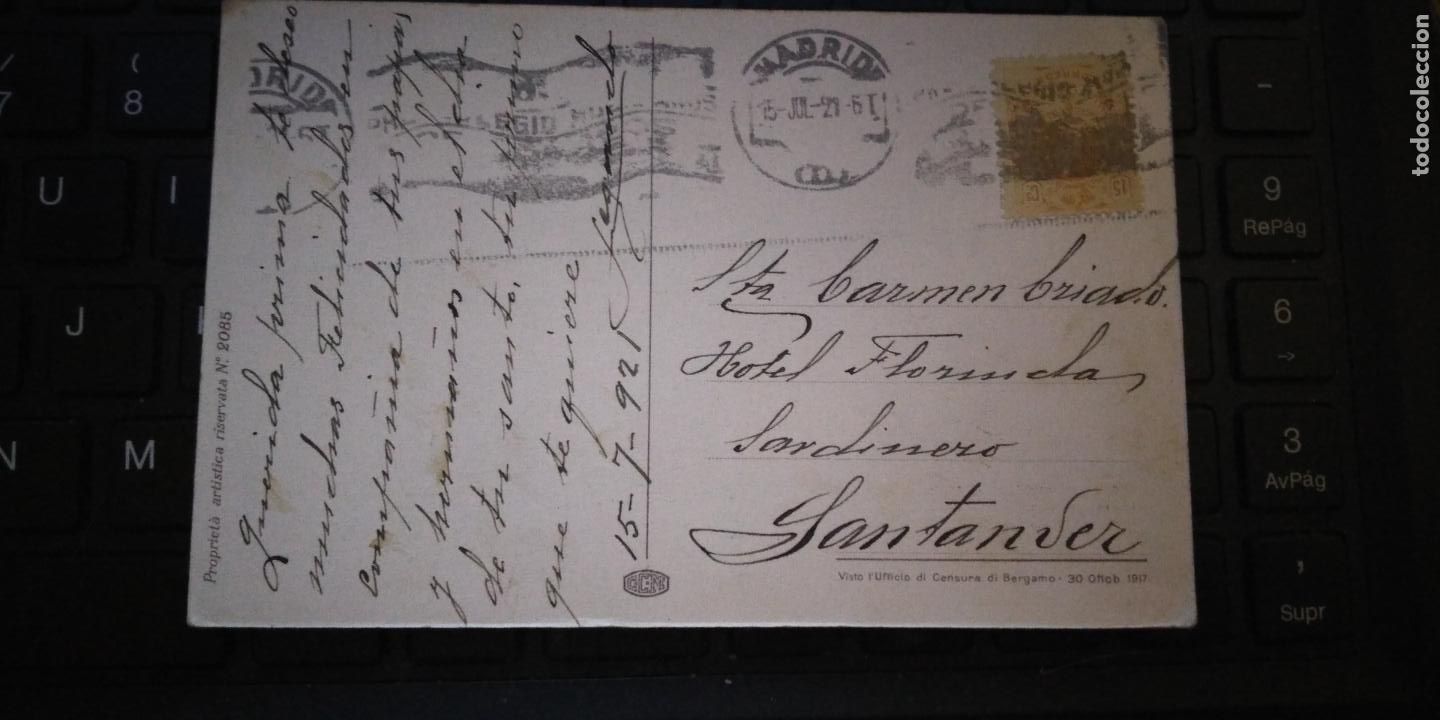 Querida prima te deseo
muchas Felicidades en
compañia de tus papas
y hermanos en el dia
de tu santo, tu primo
que te quiere
Segundo
15-7-921
Proprietà artistica riservata N.° 2085
MADRID
15-JUL-21-6T
15 C
Sta Carmen Criado.
Hotel Florinda
Sardinero
Santander
Visto l'Ufficio di Censura di Bergamo - 30 Ottob 1917
7
(
8
U
I
J
N
M
-
9
RePág
6
→
3
AvPág
,
Supr
todocoleccion